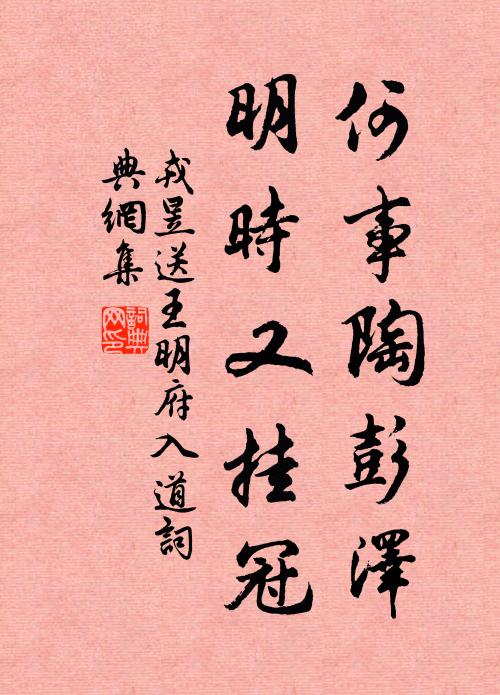 何事陶彭澤
明時又挂冠
戎昱送王明府入道詞
典網集
詞典網印